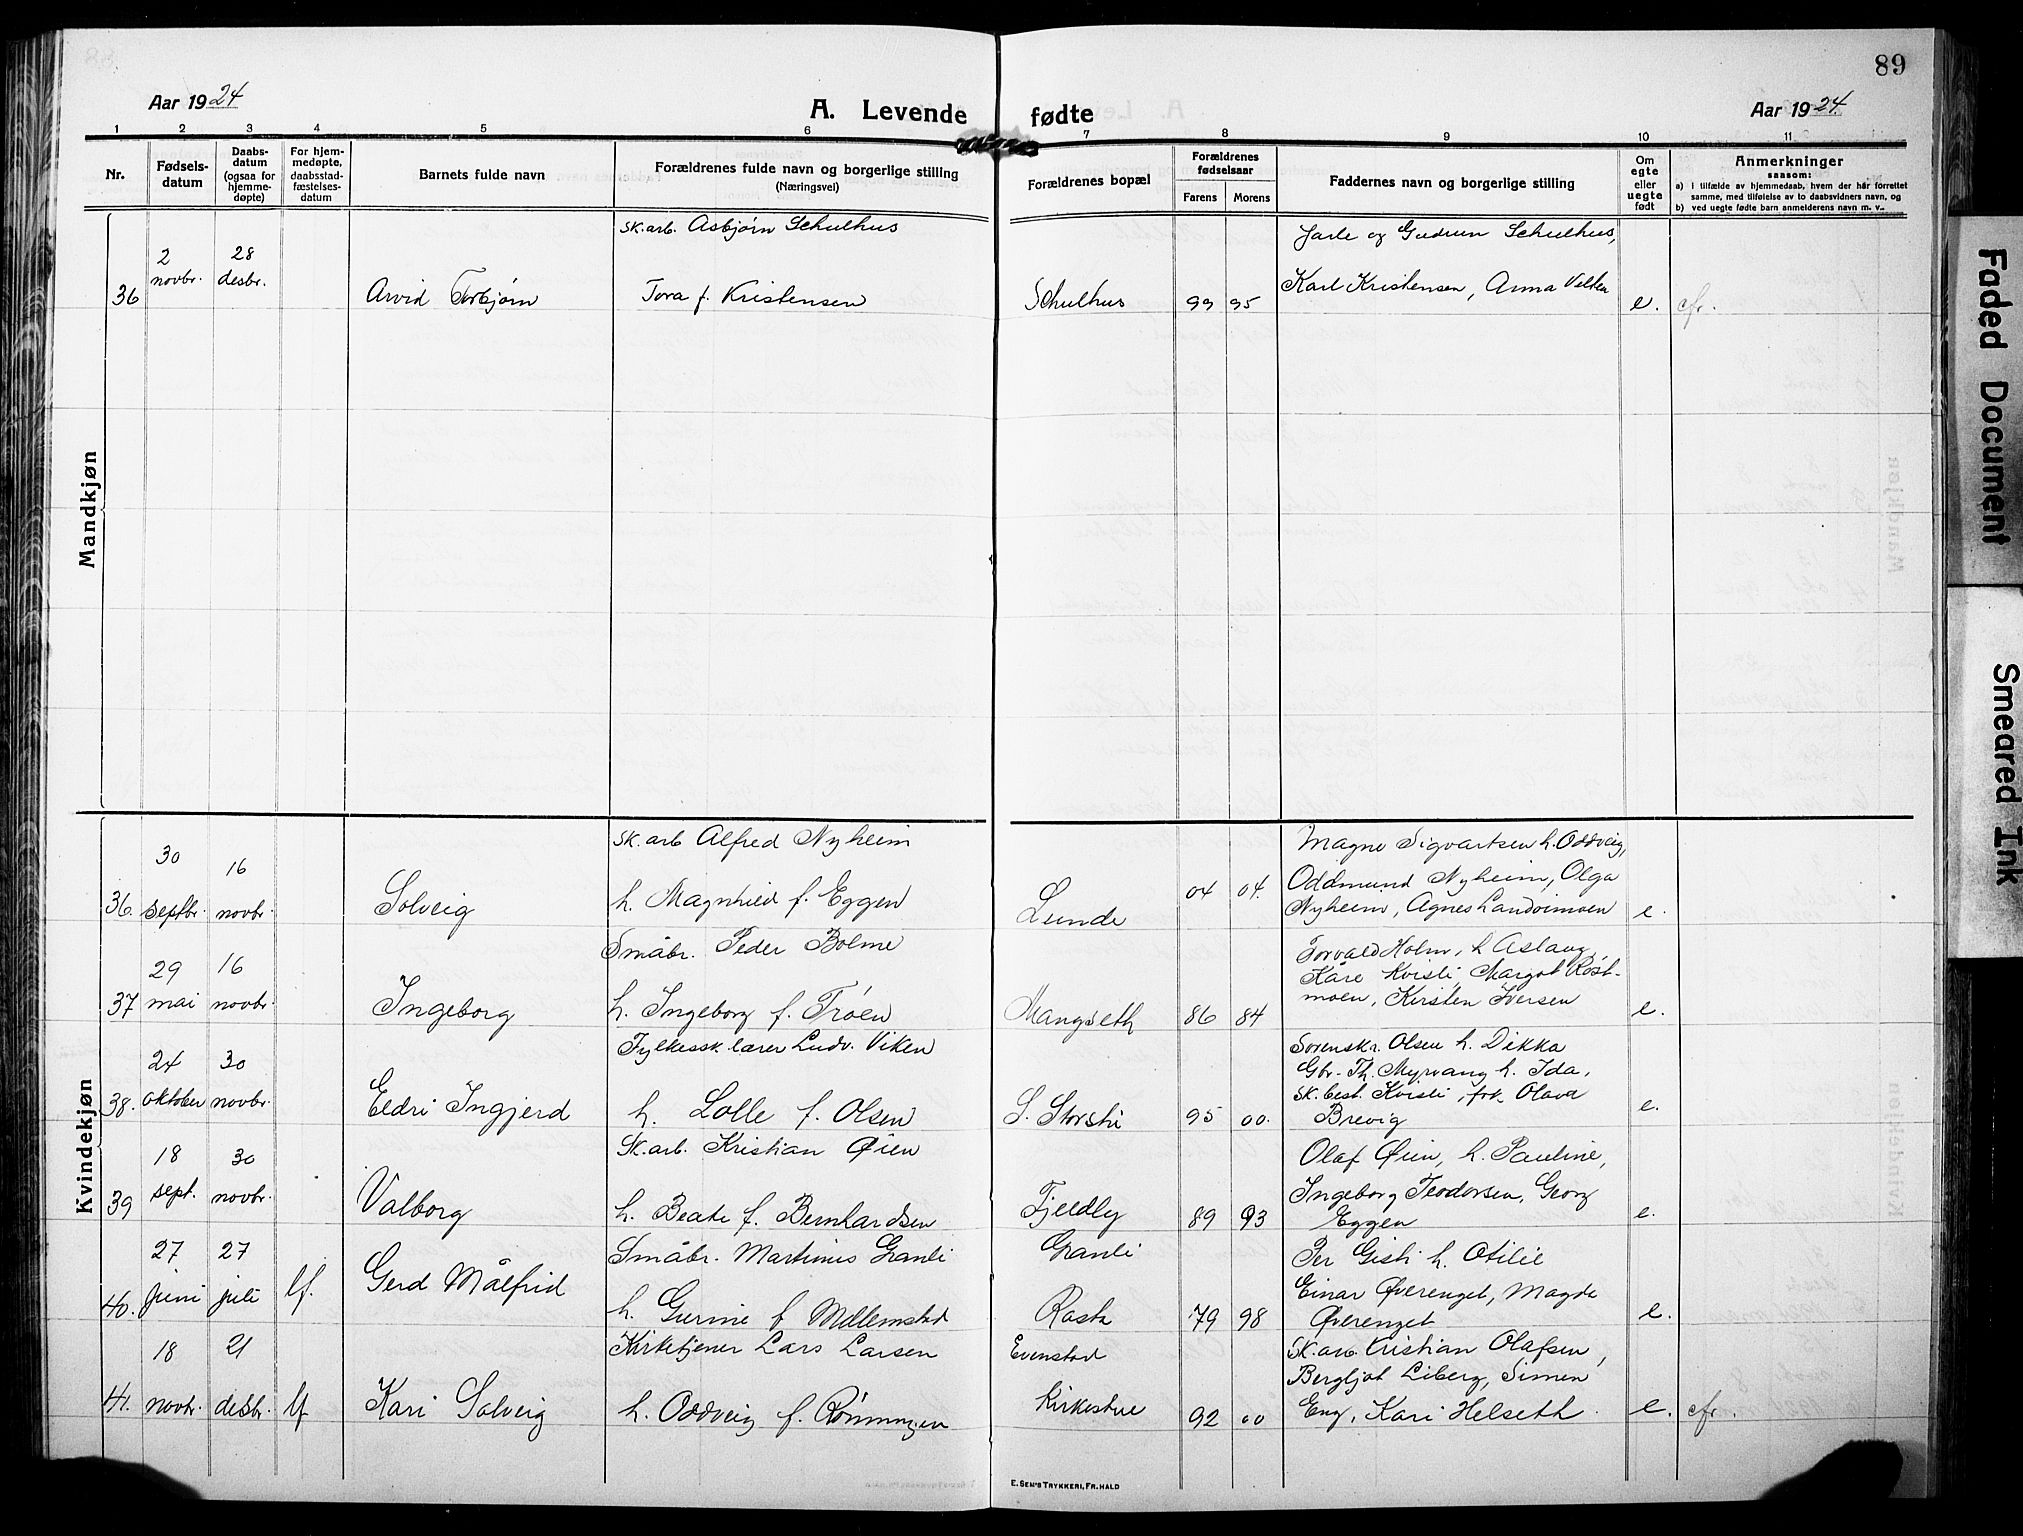 89
Aar 1924
A. Levende fødte
Aar 1924.
1 2 3 4 5 6 7 8 9 10 11
Nr.
Fødsels-
datum
Daabs-
datum
(ogsaa for
hjemme-
døpte)
For hjem-
medøpte,
daabsstad-
fæstelses-
datum
Barnets fulde navn
Forældrenes fulde navn og borgerlige stilling
(Næringsvei)
Forældrenes bopæl
Forældrenes
fødselsaar
Farens Morens
Faddernes navn og borgerlige stilling
Om
egte
eller
uegte
født
Anmerkninger
saasom:
a) i tilfælde av hjemmedaab, hvem der hår forrettet
samme, med tilføielse av to daabsvidners navn, og
b) ved uegte fødte barn anmelderens navn m. v.
Mandkjøn
sk.arb. Asbjørn Schulhus Jarle og Gudrun Schulhus,
2 28
novbr. desbr. Karl Kristensen, Anna Velten
36 Arvid Torbjørn Tora f. Kristensen Schulhus 93 95 e. cfr.
Kvindekjøn
sk.arb Alfred Nyheim Magne Sigvartsen h. Oddveig,
30 16 Oddmund Nyheim, Olga
36. septbr. novbr. Solveig h. Magnhild f. Eggen Lunde 04 04. Nyheim, Agnes Landoimoen e.
Småbr. Peder Bolme Torvald Holm, h Aslaug,
29 16 Kåre Kvisli, Margot Røst-
37 mai novbr. Ingeborg h. Ingeborg f. Trøen Mangseth 86 84 moen, Kirsten Iversen e.
Fylkessk.lærer Ludv. Viken Sorenskr. Olsen h. Dikka
24 30 Gbr. Th. Myrvang h. Ida,
38. oktober novbr. Eldri Ingjerd h. Lolle f. Olsen S. Storsti 95 00. sk.best. Kvisli, frk. Olava e.
Brevig
Sk.arb. Kristian Øien Olaf Øien, h. Pauline,
18 30 Ingeborg Teodorsen, Georg
39 sept. novbr. Valborg h. Beate f. Bernhardsen Fjeldly 89 93 Eggen e.
27 27 Småbr. Martinus Granli Granli Per Gisti h. Otilie
Einar Øverenget, Magda
40. juni juli lf. Gerd Målfrid h. Gurine f Mellemstad Rasta 79 98 Øverenget e.
18 21 Kirketjener Lars Larsen Evenstad Sk.arb. Kristian Olafsen,
Bergljot Liberg, Simen
41. novbr. desbr. lf Kari Solveig h. Oddveig f. Rønningen Kirkestue 92 00 Eng, Kari Helseth. e. cfr.
E. SEM'S TRYKKERI, FR. HALD
Faded Document
Smeared Ink